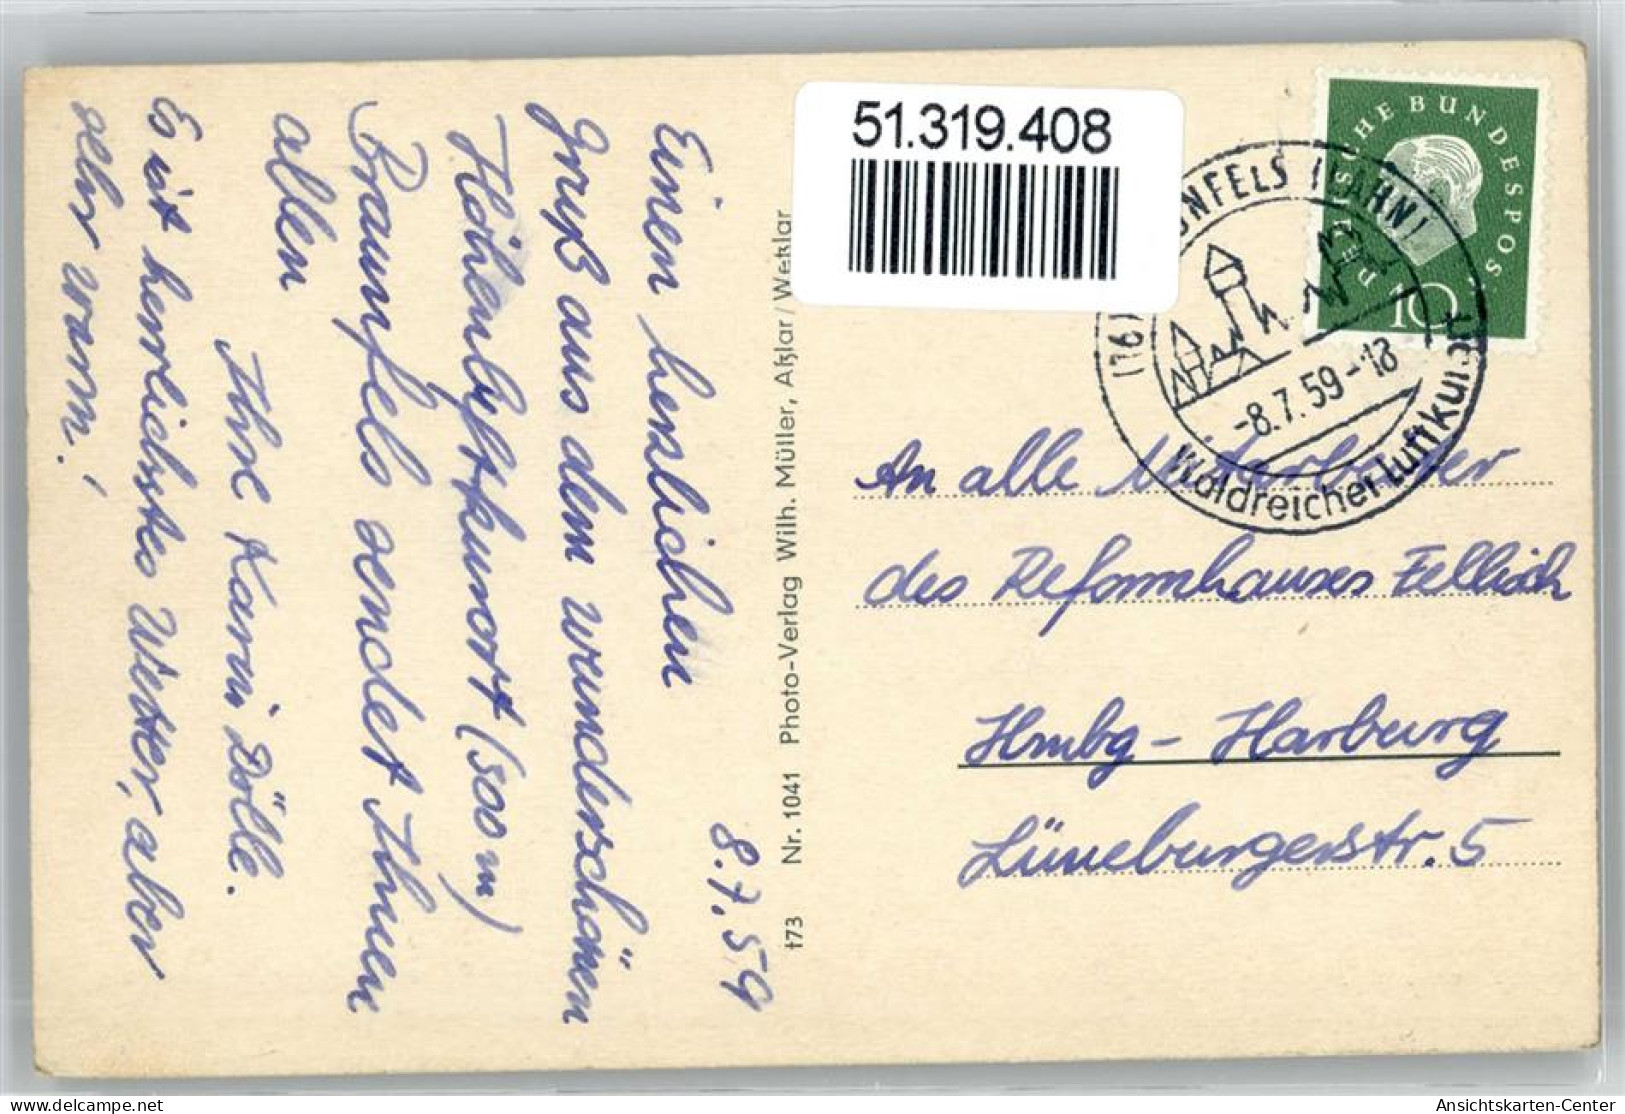 8.7.59
Einen herzlichen
Gruß aus dem wunderschönen
Höhenluftkurort (300 m)
Braunfels sendet Ihnen
allen
Ihre Karin Dölle.
Es ist herrlichstes Wetter, aber
sehr warm!
t73 Nr. 1041 Photo-Verlag Wilh. Müller, Aßlar/Weßlar
51.319.408
DEUTSCHE BUNDESPOST
10
UNFELS (LAHN)
-8.7.59-18
Waldreicher Luftkurort
An alle Mitarbeiter
des Reformhauses Fellisch
Hmbg-Harburg
Lüneburgerstr. 5
Ansichtskarten-Center
delcampe.net